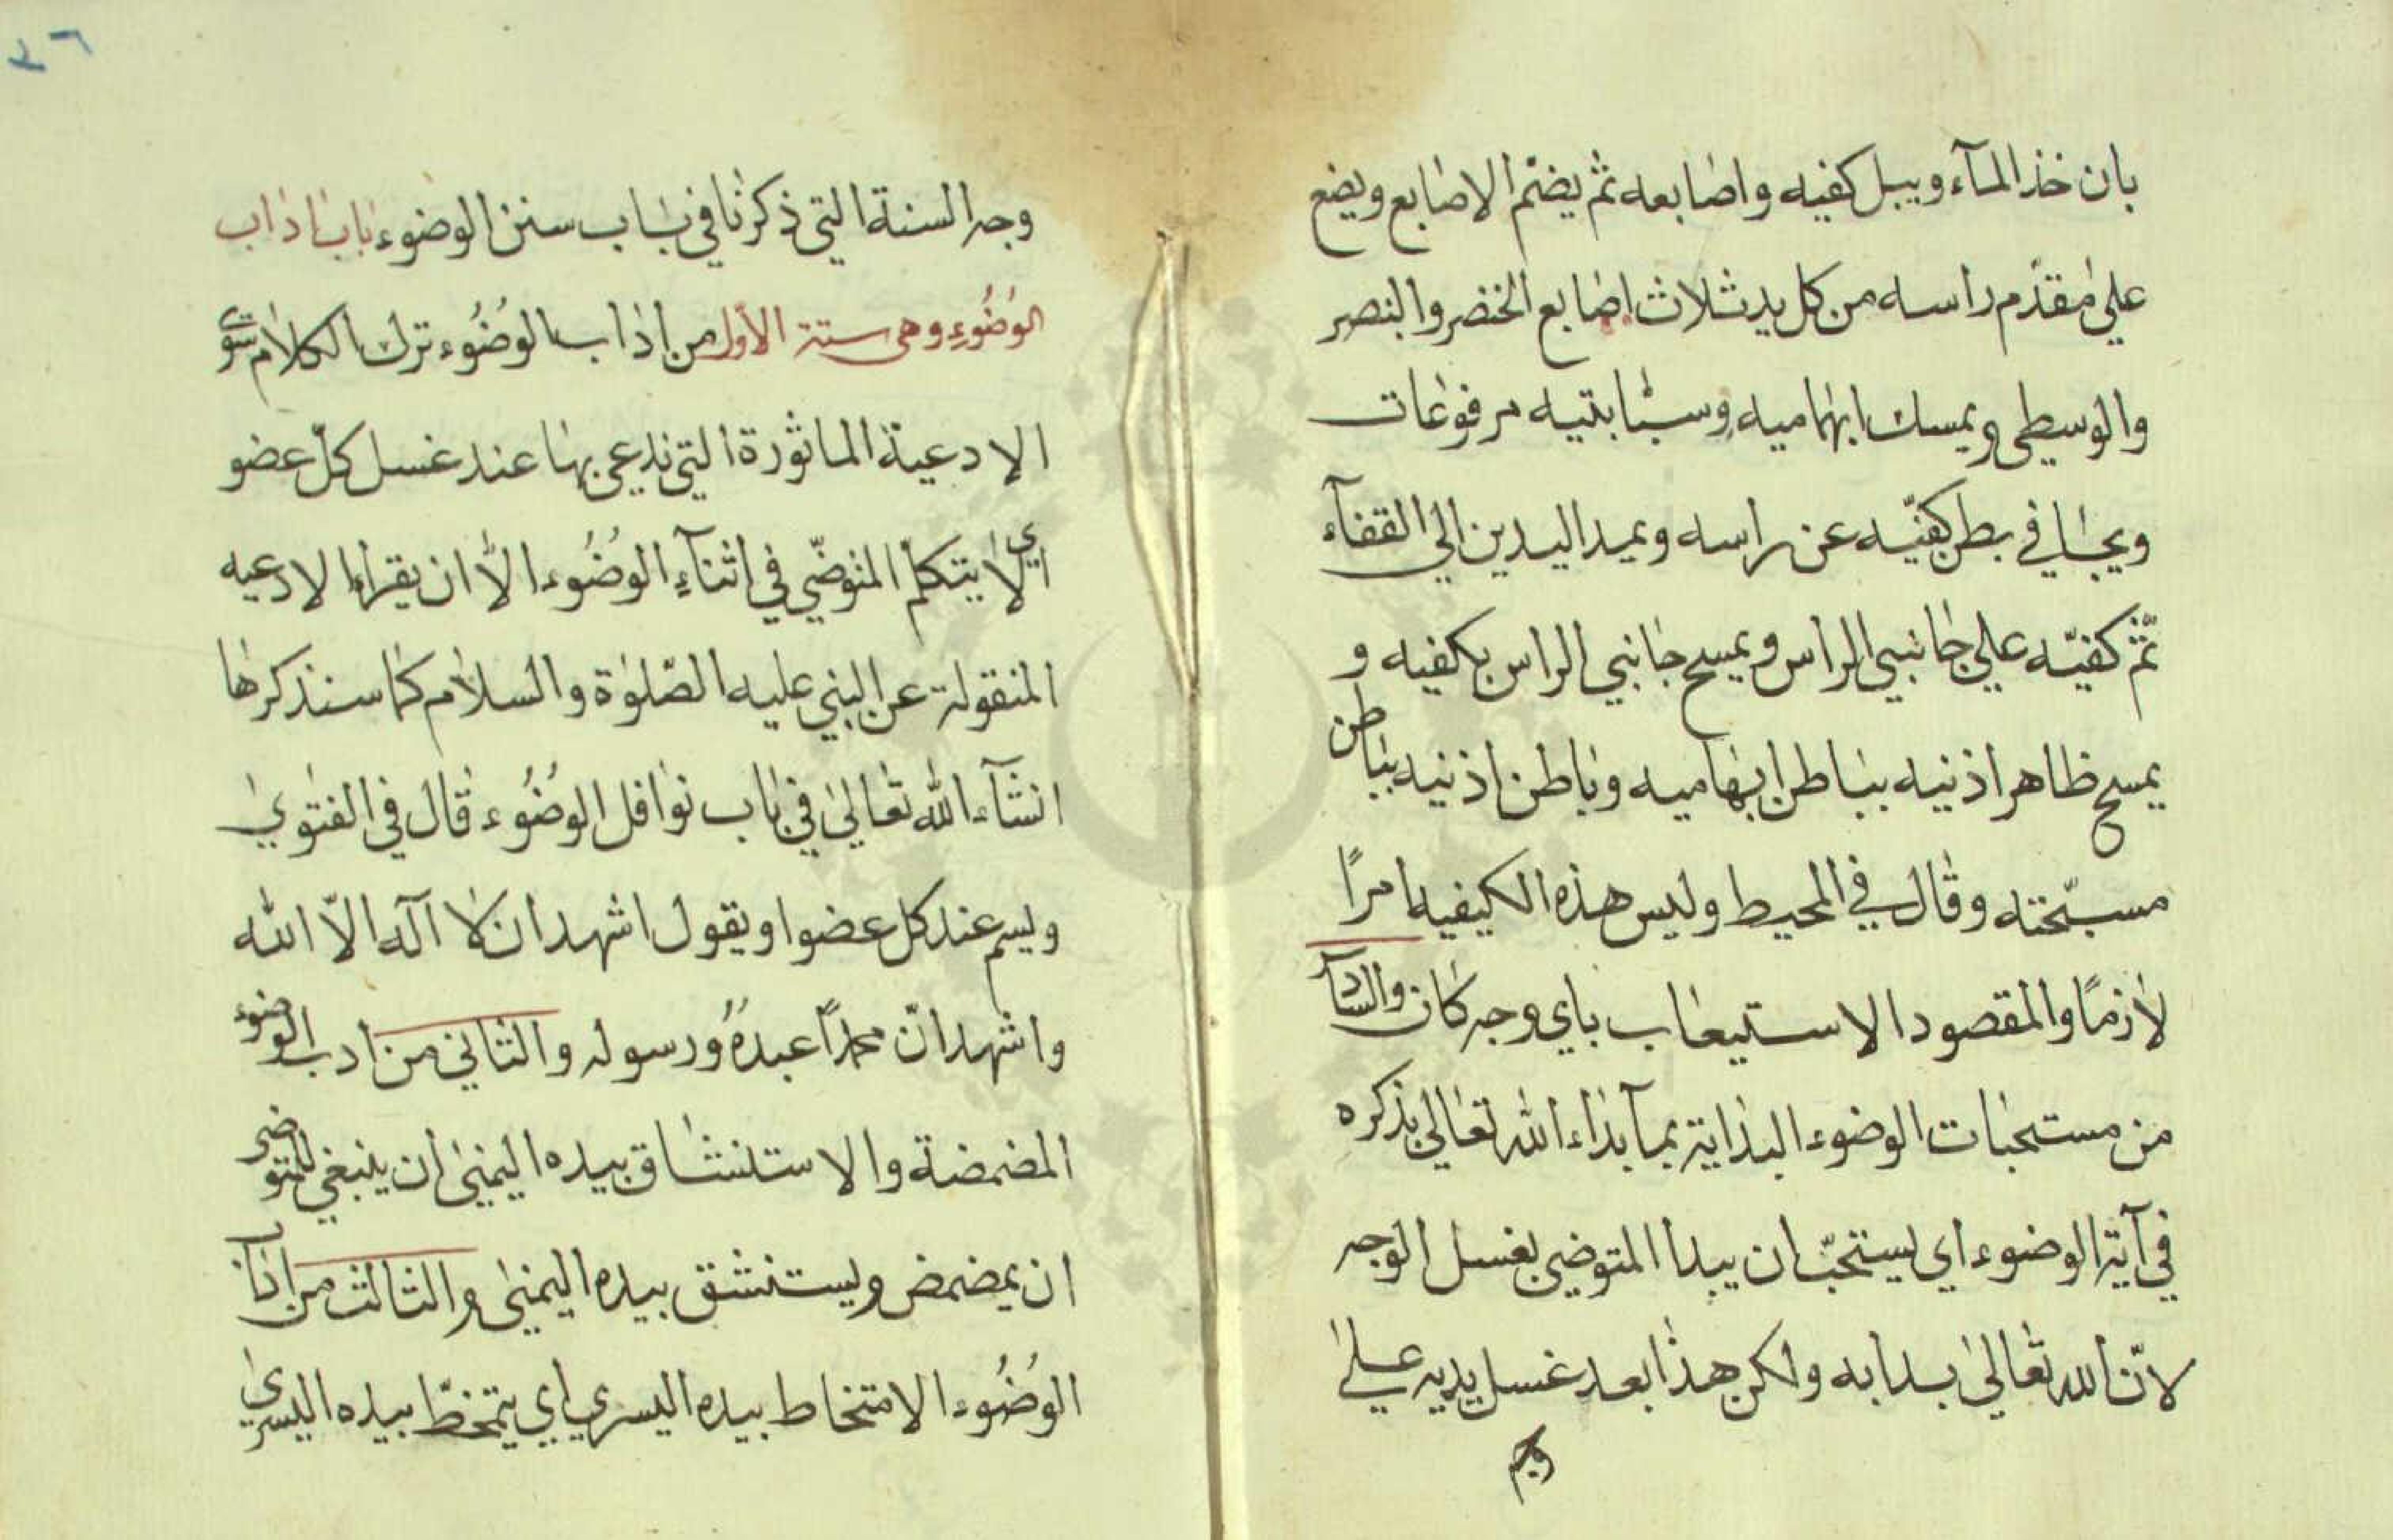 بان خذ المآء ويبل كفيه واصابعه ثم يضم الاصابع ويضع
على مقدم راسه من كل يد ثلاث اصابع الخنصر والبنصر
والوسطى ويمسك ابهاميه وسبابتيه مرفوعات
ويجافي بطن كفيّه عن راسه ويمد اليدين الي القفآء
ثمّ كفيّه علي جانبي الراس ويمسح جانبي الراس بكفيه و
يمسح ظاهر اذنيه بباطن ابهاميه وباطن اذنيه بباطن
مسبّحته وقال في المحيط وليس هذه الكيفيه امرًا
لازمًا والمقصود الاستيعاب باي وجه كان والسادآ
من مستحبات الوضوء البداية بمآ بداء الله تعالي بذكره
في آية الوضوء اي يستحبّ ان يبدا المتوضي بغسل الوجه
لانّ الله تعالى بدا به ولكن هذا بعد غسل يديه على
وجه
٣٦
وجه السنة التي ذكرنا في باب سنن الوضوء باب اداب
الوُضُوء وهى ستة الأول من اداب الوُضُوء ترك الكلام سوى
الادعية الماثورة التي يدعى بها عند غسل كلّ عضو
اي لا يتكلم المتوضّي في اثنآءِ الوُضُوء الاّ ان يقراء الادعيه
المنقولة عن النبي عليه الصّلوٰة والسلام كما سنذكرها
انشآء الله تعالى في باب نوافل الوُضُوء قال في الفتوي
ويسم عند كل عضوا ويقول اشهد ان لا آله الاّ الله
واشهد انّ محمداً عبدهُ ورسوله والثاني من ادب الوضوء
المضمضة والاستنشاق بيده اليمنى ان ينبغي للمتوضى
ان يمضمض ويستنشق بيده اليمنى والثالث من اداب
الوُضُوء الامتخاط بيده اليسري اي يتمخطّ بيده اليسرى